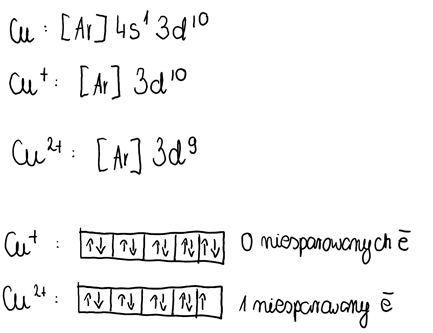 Cu : [Ar] 4s¹ 3d¹⁰
Cu⁺ : [Ar] 3d¹⁰
Cu²⁺ : [Ar] 3d⁹
Cu⁺ : ↑↓ ↑↓ ↑↓ ↑↓ ↑↓ 0 niesparowanych ē
Cu²⁺ : ↑↓ ↑↓ ↑↓ ↑↓ ↑ 1 niesparowany ē